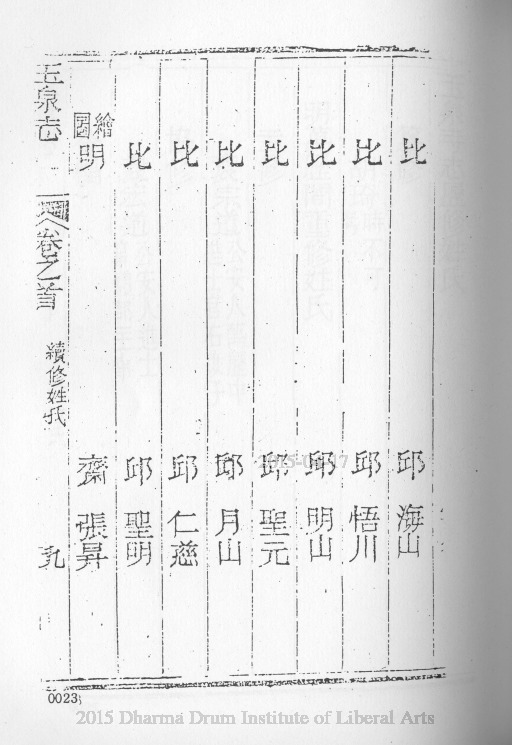 比 邱 海山
比 邱 悟川
比 邱 明山
比 邱 聖元
比 邱 月山
比 邱 仁慈
比 邱 聖明
繪圖 明 齋 張昇
玉泉志 卷之首 續修姓氏 九
0023
2015 Dharma Drum Institute of Liberal Arts